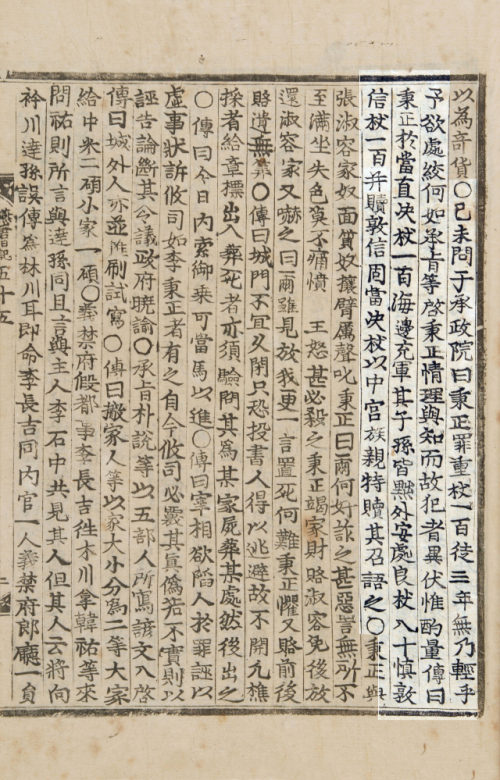 以爲奇貨○己未問于承政院曰秉正罪重杖一百徒三年無乃輕乎
予欲處絞何如承旨等啓秉正情理與知而故犯者異伏惟酌量傳曰
秉正於當直決杖一百海邊充軍其子孫皆黜外安處良杖八十愼敦
信杖一百幷贖敦信固當決杖以中宮族親特贖其召語之○秉正與
張淑容家奴面質奴攘臂厲聲叱秉正曰爾何奸詐之甚惡詈無所不
至滿坐失色莫不痛憤 王怒甚必殺之秉正竭家財賂淑容免後放
還淑容家又嚇之曰爾雖見放我更一言置死何難秉正懼又賂前後
賂遺無算○傳曰城門不宜久閉只恐投書人得以逃避故不開凡樵
採者給章標出入葬死者亦須驗問其爲某家屍葬某處然後出之
○傳曰今日內索御乘可當馬以進○傳曰宰相欲陷人於罪誣以
虛事狀訴攸司如李秉正者有之自今攸司必覈其眞僞若不實則以
誣告論斷其令議政府曉諭○承旨朴說等以五部人所寫諺文入啓
傳曰城外人亦並推刷試寫○傳曰撤家人等以家大小分爲二等大家
給中米二碩小家一碩○義禁府假都事李長吉往木川拿韓祐等來
問祐則所言與達孫同且言與主人李石中共見其人但其人云將向
衿川達孫誤傳爲林川耳卽命李長吉同內官一人義禁府郎廳一員
日記五十五
二